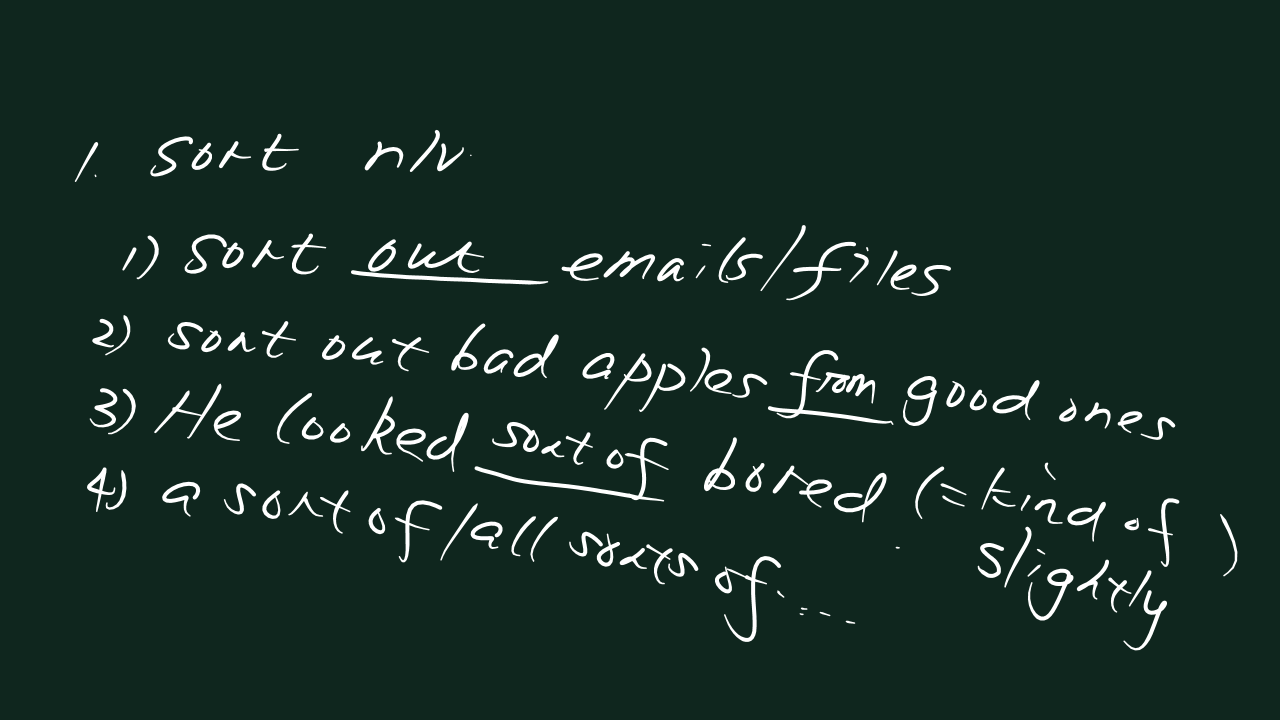 1. sort n/v.
1) sort out emails/files
2) sort out bad apples from good ones
3) He looked sort of bored (=kind of )
slightly
4) a sort of/all sorts of....